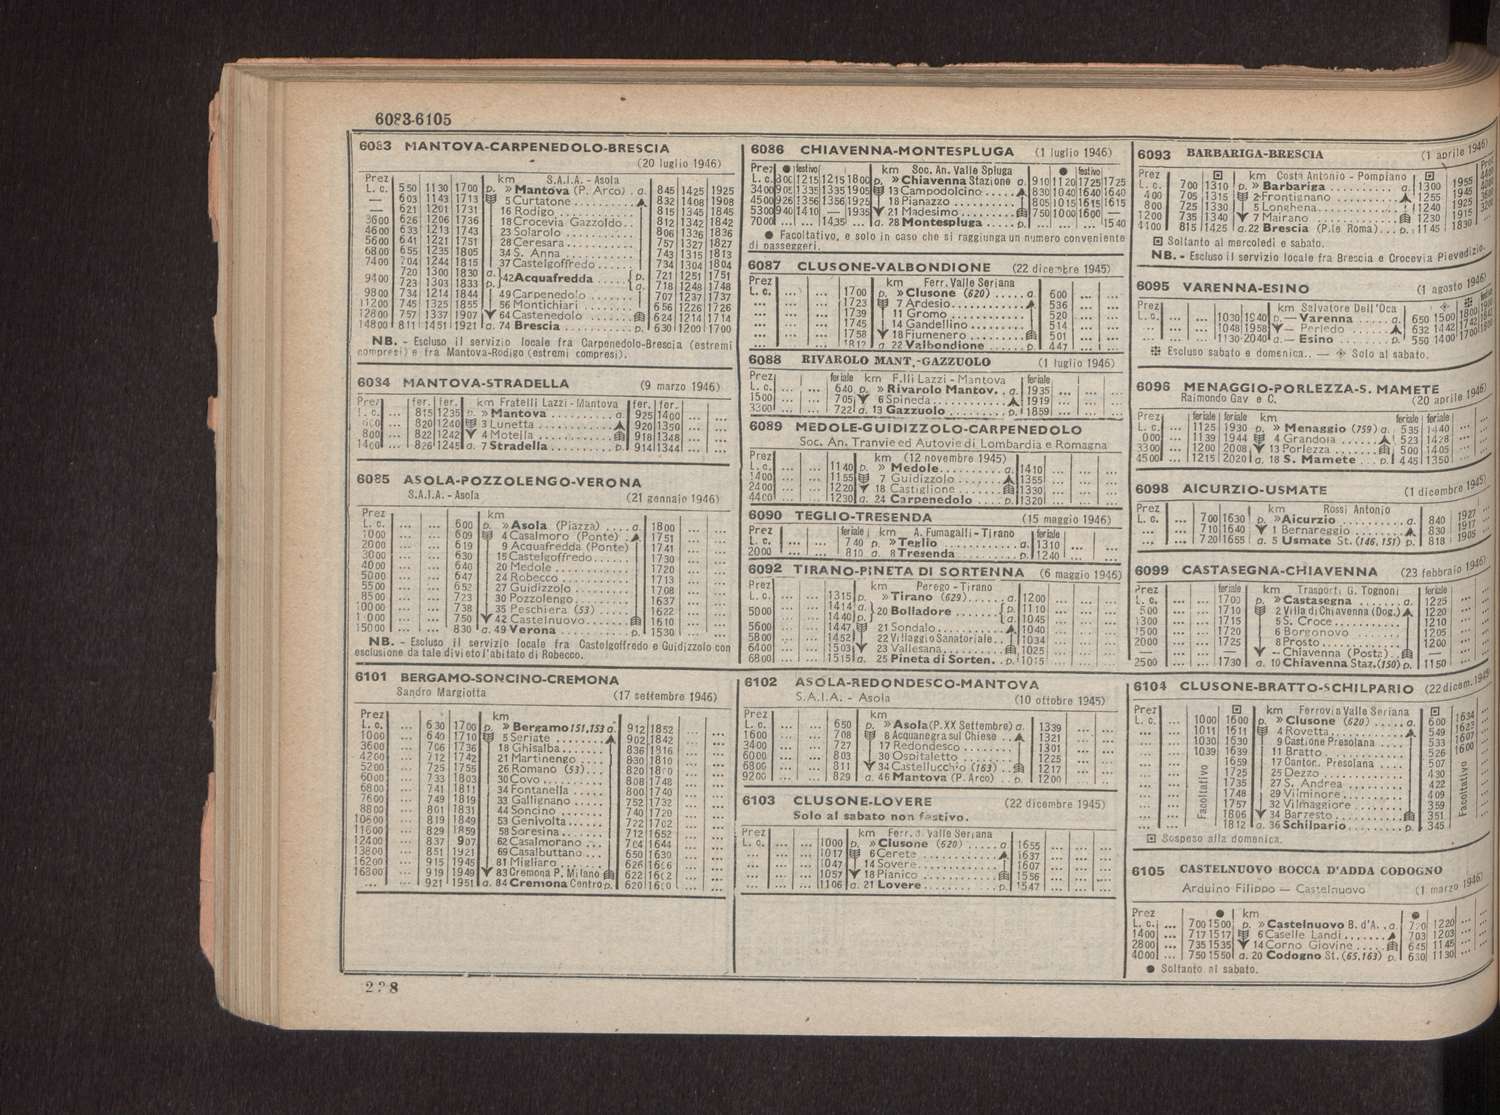 6083-6105
6083 MANTOVA-CARPENEDOLO-BRESCIA
(20 luglio 1946)
Prez km S.A.I.A. - Asola
L. c. 550 1130 1700 p. » Mantova (P. Arco) . a. 845 1425 1925
— 603 1143 1713 5 Curtatone 832 1408 1908
— 621 1201 1731 16 Rodigo 815 1345 1845
3600 626 1206 1736 18 Crocevia Gazzoldo.. 812 1342 1842
4600 633 1213 1743 23 Solarolo 806 1336 1836
5600 641 1221 1751 28 Ceresara 757 1327 1827
6800 655 1235 1805 34 S. Anna 743 1315 1813
7400 704 1244 1815 37 Castelgoffredo 734 1304 1804
720 1300 1830 a. p. 721 1251 1751
9400 723 1303 1833 p. 42 Acquafredda a. 718 1248 1748
9800 734 1214 1844 49 Carpenedolo 707 1237 1737
11200 745 1325 1855 56 Montichiari 656 1226 1726
12800 757 1337 1907 64 Castenedolo 624 1214 1714
14800 811 1451 1921 a. 74 Brescia p. 630 1200 1700
NB. - Escluso il servizio locale fra Carpenedolo-Brescia (estremi
compresi) e fra Mantova-Rodigo (estremi compresi).
6084 MANTOVA-STRADELLA (9 marzo 1946)
Prez fer. fer. km Fratelli Lazzi - Mantova fer. fer.
L. c. ... 815 1235 p. » Mantova a. 925 1400 ...
... 820 1240 3 Lunetta 920 1350 ...
800 ... 822 1242 4 Motella 918 1348 ...
1400 ... 826 1245 a. 7 Stradella p. 914 1344 ...
6085 ASOLA-POZZOLENGO-VERONA
S.A.I.A. - Asola (21 gennaio 1946)
Prez km
L. c. ... ... 600 p. » Asola (Piazza) a. 1800 ... ...
1000 ... ... 609 4 Casalmoro (Ponte) 1751 ... ...
2000 ... ... 619 9 Acquafredda (Ponte) 1741 ... ...
3000 ... ... 630 15 Castelgoffredo 1730 ... ...
4000 ... ... 640 20 Medole 1720 ... ...
5000 ... ... 647 24 Robecco 1713 ... ...
5500 ... ... 652 27 Guidizzolo 1708 ... ...
8500 ... ... 723 30 Pozzolengo 1637 ... ...
10000 ... ... 738 35 Peschiera (53) 1622 ... ...
... ... 750 42 Castelnuovo 1610 ... ...
15000 ... ... 830 a. 49 Verona p. 1530 ... ...
NB. - Escluso il servizio locale fra Castelgoffredo e Guidizzolo con
esclusione da tale divieto l'abitato di Robecco.
6101 BERGAMO-SONCINO-CREMONA
Sandro Margiotta (17 settembre 1946)
Prez km
L. c. ... 630 1700 p. » Bergamo 151,153 a. 912 1852 ...
1000 ... 640 1710 5 Seriate 902 1842 ...
3600 ... 706 1736 18 Ghisalba 836 1816 ...
4200 ... 712 1742 21 Martinengo 830 1810 ...
5200 ... 725 1755 26 Romano (53) 820 1800 ...
6000 ... 733 1803 30 Covo 808 1748 ...
6800 ... 741 1811 34 Fontanella 800 1740 ...
7600 ... 749 1819 33 Gallignano 752 1732 ...
8800 ... 801 1831 44 Soncino 740 1720 ...
10600 ... 819 1849 53 Genivolta 722 1702 ...
11600 ... 829 1859 58 Soresina 712 1652 ...
12400 ... 837 907 62 Casalmorano 704 1644 ...
13800 ... 851 1921 69 Casalbuttano 650 1630 ...
16200 ... 915 1945 81 Migliaro 626 1606 ...
16800 ... 919 1949 83 Cremona P. Milano 622 1602 ...
... ... 921 1951 a. 84 Cremona Centro p. 620 1600 ...
6086 CHIAVENNA-MONTESPLUGA (1 luglio 1946)
Prez ● festivo km Soc. An. Valle Spluga ● festivo
L. c. 800 1215 1215 1800 p. » Chiavenna Stazione a. 910 1120 1725 1725
3400 905 1335 1335 1905 13 Campodolcino 830 1040 1640 1640
4500 926 1356 1356 1925 18 Pianazzo 805 1015 1615 1615
5300 940 1410 — 1935 21 Madesimo 750 1000 1600 —
7000 ... ... 1435 ... a. 28 Montespluga p. ... ... ... 1540
● Facoltativo, e solo in caso che si raggiunga un numero conveniente
di passeggeri.
6087 CLUSONE-VALBONDIONE (22 dicembre 1945)
Prez km Ferr. Valle Seriana
L. c. ... ... 1700 p. » Clusone (620) a. 600 ... ...
... ... ... 1723 7 Ardesio 536 ... ...
... ... ... 1739 11 Gromo 520 ... ...
... ... ... 1745 14 Gandellino 514 ... ...
... ... ... 1758 18 Fiumenero 501 ... ...
... ... ... 1812 a. 22 Valbondione p. 447 ... ...
6088 RIVAROLO MANT.-GAZZUOLO (1 luglio 1946)
Prez feriale km F.lli Lazzi - Mantova feriale
L. c. ... ... 640 p. » Rivarolo Mantov. . a. 1935 ... ...
1500 ... ... 705 6 Spineda 1919 ... ...
3300 ... ... 722 a. 13 Gazzuolo p. 1859 ... ...
6089 MEDOLE-GUIDIZZOLO-CARPENEDOLO
Soc. An. Tranvie ed Autovie di Lombardia e Romagna
Prez km (12 novembre 1945)
L. c. ... ... 1140 p. » Medole a. 1410 ... ...
1400 ... ... 1155 7 Guidizzolo 1355 ... ...
2400 ... ... 1220 18 Castiglione 1330 ... ...
4400 ... ... 1230 a. 24 Carpenedolo p. 1320 ... ...
6090 TEGLIO-TRESENDA (15 maggio 1946)
Prez feriale km A. Fumagalli - Tirano feriale
L. c. ... ... 740 p. » Teglio a. 1310 ... ...
2000 ... ... 810 a. 8 Tresenda p. 1240 ... ...
6092 TIRANO-PINETA DI SORTENNA (6 maggio 1946)
Prez km Perego - Tirano
L. c. ... ... 1315 p. » Tirano (629) a. 1200 ... ...
5000 ... ... 1414 a. 20 Bolladore p. 1110 ... ...
1440 p. a. 1045
5600 ... ... 1447 21 Sondalo 1040 ... ...
5800 ... ... 1452 22 Villaggio Sanatoriale 1034 ... ...
6400 ... ... 1503 23 Vallesana 1025 ... ...
6800 ... ... 1515 a. 25 Pineta di Sorten. . p. 1015 ... ...
6102 ASOLA-REDONDESCO-MANTOVA
S.A.I.A. - Asola (10 ottobre 1945)
Prez km
L. c. ... ... 650 p. » Asola (P.XX Settembre) a. 1339 ... ...
1600 ... ... 708 8 Acquanegra sul Chiese 1321 ... ...
3400 ... ... 727 17 Redondesco 1301 ... ...
6000 ... ... 803 30 Ospitaletto 1225 ... ...
6800 ... ... 811 34 Castellucchio (163) 1217 ... ...
9200 ... ... 829 a. 46 Mantova (P. Arco) p. 1200 ... ...
6103 CLUSONE-LOVERE (22 dicembre 1945)
Solo al sabato non festivo.
Prez km Ferr. d. Valle Seriana
L. c. ... ... 1000 p. » Clusone (620) a. 1655 ... ...
... ... ... 1017 6 Cerete 1637 ... ...
... ... ... 1047 14 Sovere 1607 ... ...
... ... ... 1057 18 Pianico 1556 ... ...
... ... ... 1106 a. 21 Lovere p. 1547 ... ...
6093 BARBARIGA-BRESCIA (1 aprile 1946)
Prez km Costa Antonio - Pompiano Prez
L. c. 700 1310 p. » Barbariga a. 1300 1955
400 705 1315 2 Frontignano 1255 1945
800 725 1330 5 Longhena 1240 1925
1200 735 1340 7 Mairano 1230 1915
4100 815 1425 a. 22 Brescia (P.le Roma) p. 1145 1830
Soltanto al mercoledì e sabato.
NB. - Escluso il servizio locale fra Brescia e Crocevia Pievedizio.
6095 VARENNA-ESINO (1 agosto 1946)
Prez km Salvatore Dell'Oca festivo
L. c. ... ... 1030 1940 p. — Varenna a. 650 1500 1800 1900
... ... 1048 1958 — Perledo 632 1442 1742 1842
... ... 1130 2040 a. — Esino p. 550 1400 1700 1800
Escluso sabato e domenica.. — Solo al sabato.
6096 MENAGGIO-PORLEZZA-S. MAMETE
Raimondo Gav e C. (20 aprile 1946)
Prez feriale feriale km feriale feriale
L. c. ... 1125 1930 p. » Menaggio (759) a. 535 1440 ...
... 1139 1944 4 Grandola 523 1428 ...
3300 ... 1200 2008 13 Porlezza 500 1405 ...
4500 ... 1215 2020 a. 18 S. Mamete p. 445 1350 ...
6098 AICURZIO-USMATE (1 dicembre 1945)
Prez km Rossi Antonio
L. c. ... 700 1630 p. » Aicurzio a. 840 1927 ...
... ... 710 1640 1 Bernareggio 830 1917 ...
... ... 720 1655 a. 5 Usmate St. (146, 151) p. 818 1905 ...
6099 CASTASEGNA-CHIAVENNA (23 febbraio 1946)
Prez feriale km Trasporti G. Tognoni feriale
L. c. ... ... 1700 p. » Castasegna a. 1225 ... ...
500 ... ... 1710 2 Villa di Chiavenna (Dog.) 1220 ... ...
1300 ... ... 1715 5 S. Croce 1210 ... ...
1500 ... ... 1720 6 Borgonovo 1205 ... ...
2000 ... ... 1725 8 Prosto 1200 ... ...
— ... ... — – Chiavenna (Posta) — ... ...
2500 ... ... 1730 a. 10 Chiavenna Staz. (150) p. 1150 ... ...
6104 CLUSONE-BRATTO-SCHILPARIO (22 dicem. 1945)
Prez km Ferrovia Valle Seriana
L. c. ... 1000 1600 p. » Clusone (620) a. 600 1634
... 1011 1611 4 Rovetta 549 1623
... 1030 1630 9 Castione Presolana 533 1607
... 1039 1639 11 Bratto 526 1600
... 1659 17 Cantor. Presolana 507
... 1725 25 Dezzo 430
... 1735 27 S. Andrea 422
... 1748 29 Vilminore 409
... 1757 32 Vilmaggiore 359
... 1806 34 Barzesto 351
... 1812 a. 36 Schilpario p. 345
Facoltativo
Facoltativo
Sospeso alla domenica.
6105 CASTELNUOVO BOCCA D'ADDA CODOGNO
Arduino Filippo — Castelnuovo (1 marzo 1946)
Prez ● km ●
L. c. ... 700 1500 p. » Castelnuovo B. d'A. . a. 720 1220 ... ...
1400 ... 717 1517 6 Caselle Landi 703 1203 ... ...
2800 ... 735 1535 14 Corno Giovine 645 1145 ... ...
4000 ... 750 1550 a. 20 Codogno St. (65,163) p. 630 1130 ... ...
● Soltanto al sabato.
228